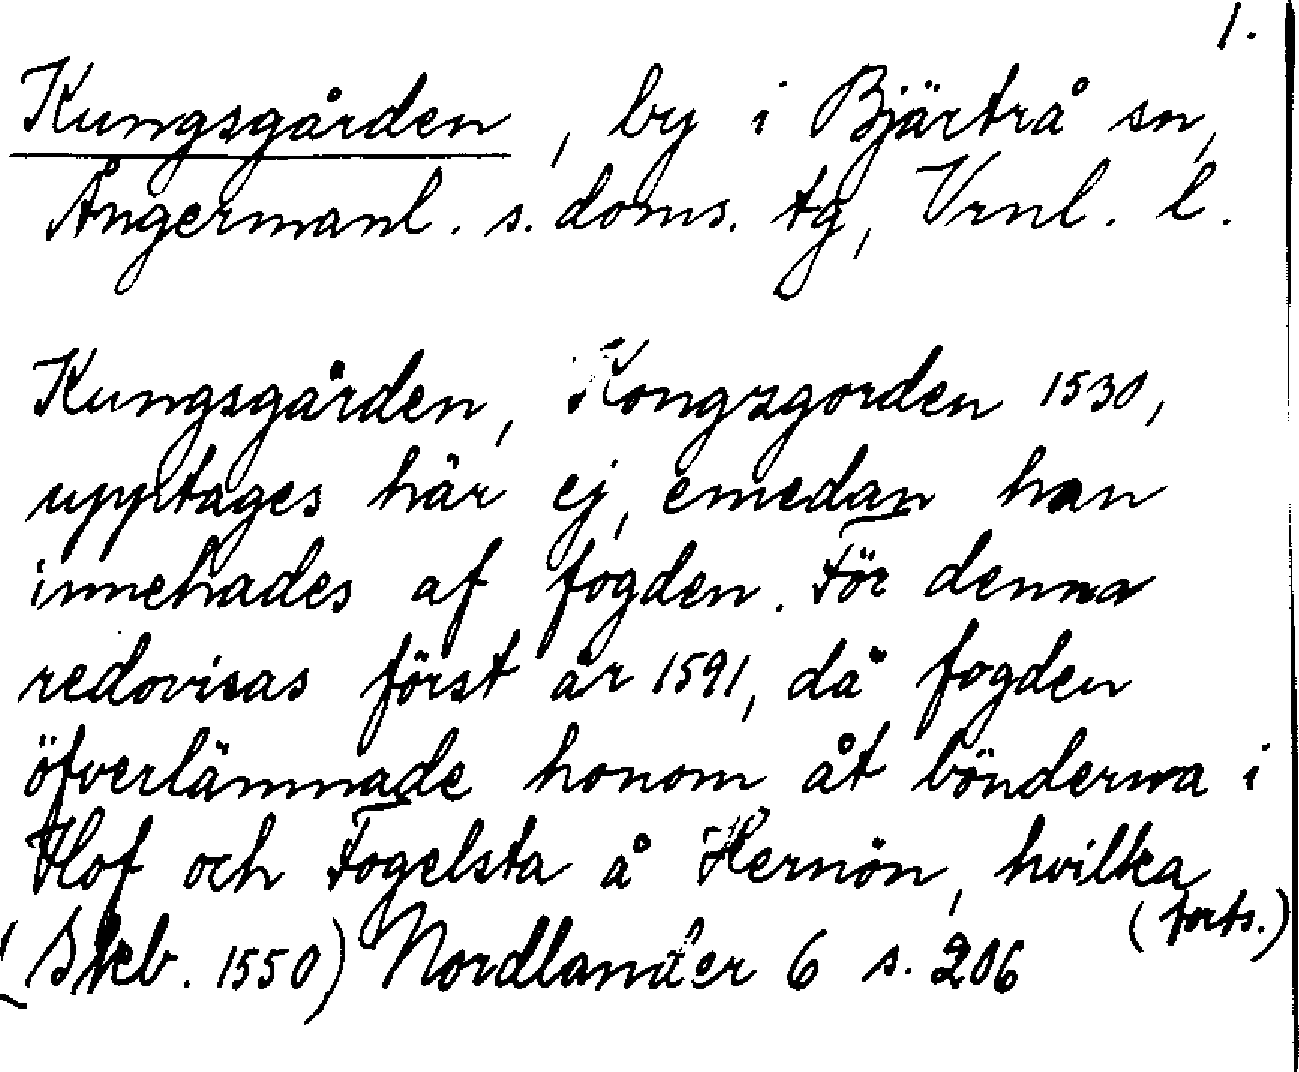 1.
Kungsgården, by i Bjärtrå sn,
Ångermanl. s. doms. tg, Vrnl. l.
Kungsgården, Kongzgorden 1530,
upptages här ej, emedan han
innehades af fogden. För denna
redovisas först år 1591, då fogden
öfverlämnade honom åt bönderna i
Hof och Fogelsta å Hernön, hvilka
(forts.)
(Skb. 1550) Nordlander 6 s. 206